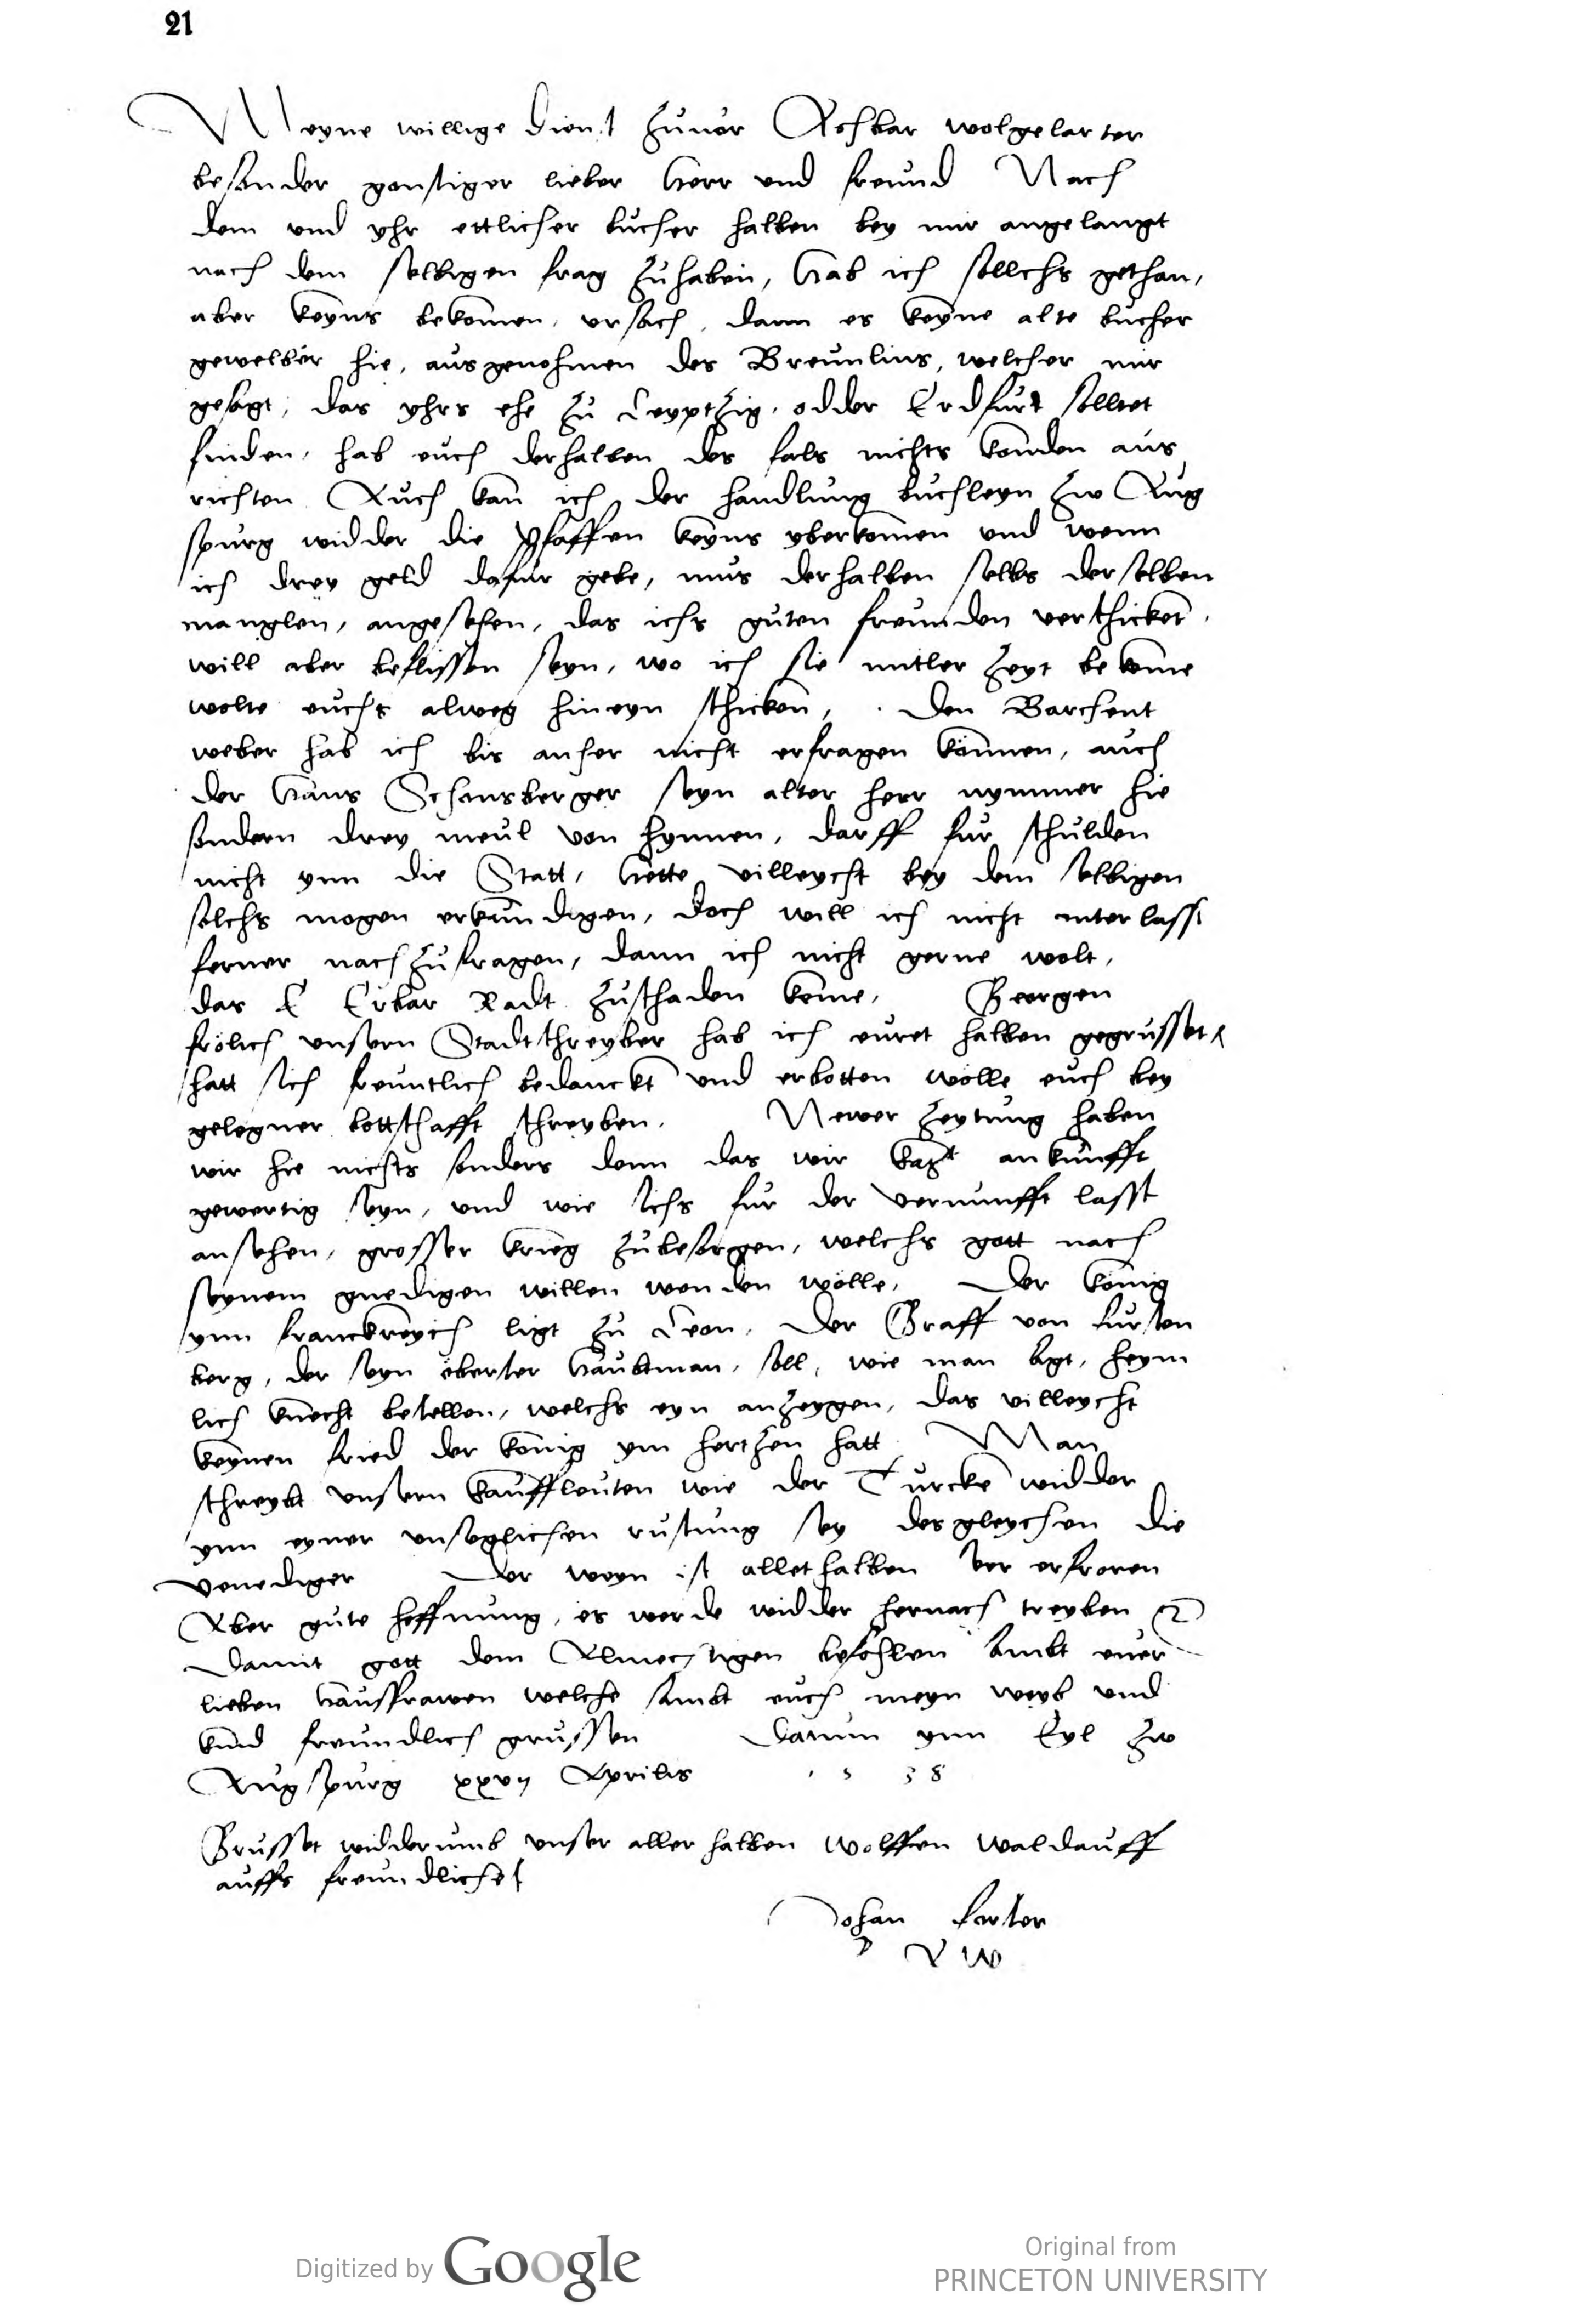 21
Meyne willige dienst zuuor Achbar wolgelarter
besonder gonstiger lieber Herr vnd freund Nach
dem vnd yhr ettlicher bucher halben bey mir angelangt
nach dem selbigen frag zuhaben, Hab ich sollchs gethan,
aber keyns bekomen, vrsach, dann es keyne alte bucher
gewelber hie, ausgenohmen des Breunlins, welcher mir
gesagt, das yhrs ehe zu Leyptzig, odder Erdfurt solltet
finden, hab euch derhalben des fals nichts konden aus
richten Auch kan ich der handlung buchleyn zw Aug
spurg widder die Pfaffen keyns vberkomen vnd wenn
ich drey geld dafur gebe, mus derhalben selbs derselben
manglen, angesehen, das ichs guten freunden verschicket,
will aber beflissen seyn, wo ich sie mitler zeyt bekome
wolte euchs alweg hineyn schicken, Den Barchent
weber hab ich bis anher nicht erfragen können, auch
der Hans Schensberger seyn alter herr nymmer hie
sondern drey meul von hynnen, darff fur schulden
nicht ynn die Statt, Hette villeycht bey dem selbigen
solchs mogen erkundigen, doch will ich nicht vnterlassen
ferner nachzufragen, dann ich nicht gerne wolt,
das E Erbar Radt zuschaden keme, Georgen
frölich vnsern Stadtschreyber hab ich euret halben gegrusset,
hatt sich freuntlich bedanckt vnd erbotten wölle euch bey
gelegner bottschafft schreyben. Newer zeytung haben
wir hie nichts sonders denn das wir kayt ankunfft
gewertig seyn, vnd wie sichs fur der vernunfft lasst
ansehen, grosser krieg zubesorgen, welchs gott nach
seynem gnedigen willen wenden wölle, Der König
ynn franckreych ligt zu Leon, Der Graff von fursten
berg, der seyn öberster Haubtman, soll, wie man sagt, heym
lich knecht bestellen, welchs eyn anzeygen, das villeycht
keynen fried der könig ym hertzen hatt Man
schreybt vnsern kauffleuten wie der Turcke widder
ynn eyner vnseglichen rustung sey desgleychen die
Venediger Der weyn ist allethalben ser erfroren
Aber gute hoffnung, es werde widder hernach treyben
Damit gott dem Almechtigen befohlen sambt euer
lieben Hausfrawen welche sambt euch meyn weyb vnd
kind freundlich grussen Datum ynn Eyl zw
Augspurg xxvij Aprilis 1538
Grusset widderumb vnser aller halben Wolffen Waldauff
auffs freundlichst
Johan forster
D E W
Digitized by Google
Original from
PRINCETON UNIVERSITY